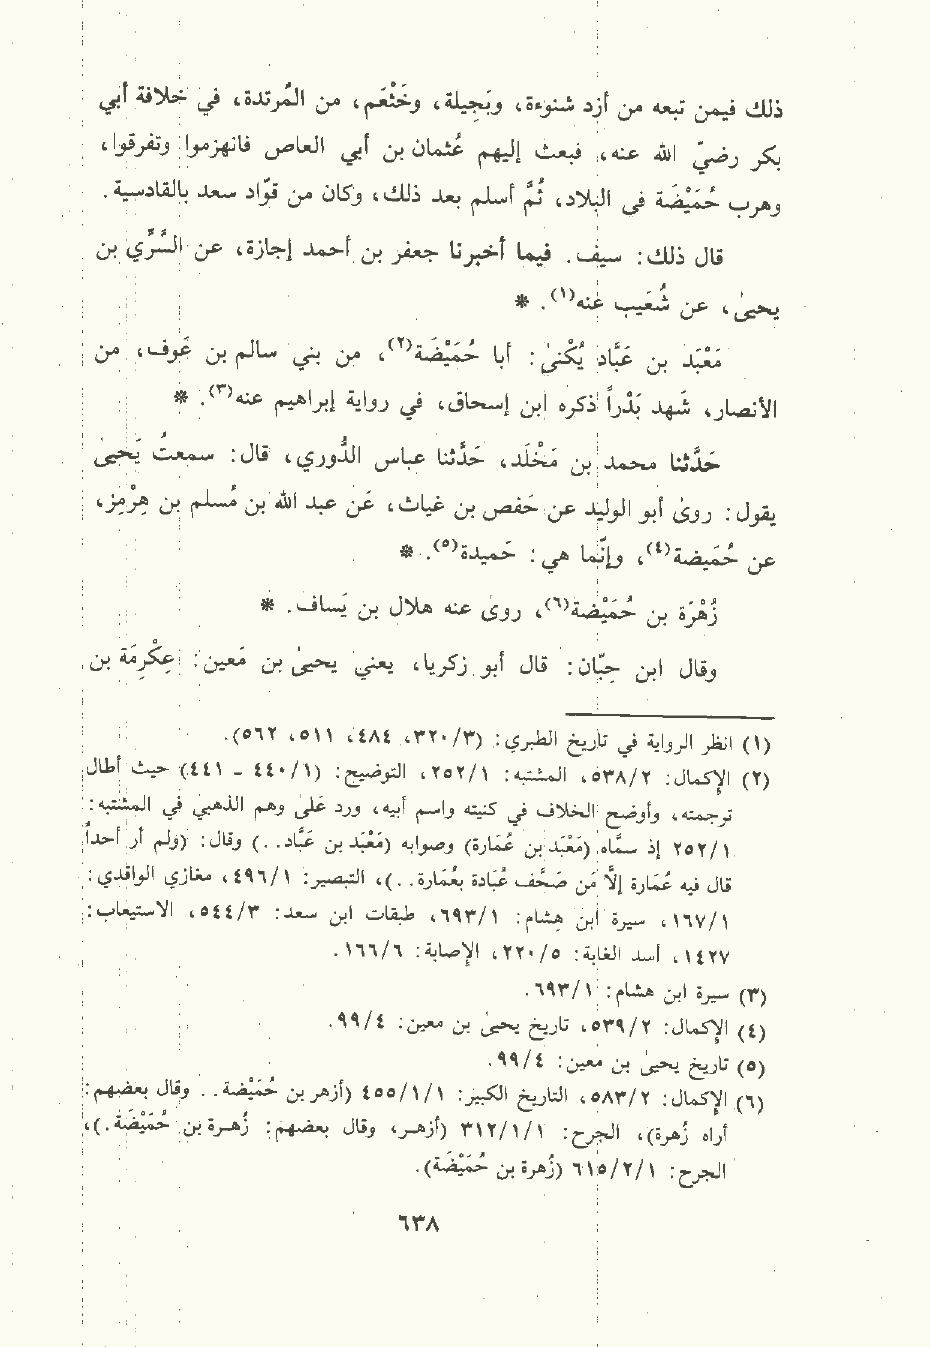 ذلك فيمن تبعه من أزد شنوءة، وبَجيلة، وخَثْعَم، من المُرتدة، في خلافة أبي
بكر رضيّ الله عنه، فبعث إليهم عُثمان بن أبي العاص فانهزموا وتفرقوا،
وهرب حُمَيْضَة في البلاد، ثُمَّ أسلم بعد ذلك، وكان من قوّاد سعد بالقادسية.
قال ذلك: سيف. فيما أخبرنا جعفر بن أحمد إجازة، عن السَّرِّي بن
يحيىٰ، عن شُعَيب عنه(١). *
مَعْبَد بن عَبَّاد يُكْنىٰ: أبا حُمَيْضَة(٢)، من بني سالم بن عَوف، من
الأنصار، شَهد بَدْراً ذكره ابن إسحاق، في رواية إبراهيم عنه(٣). *
حَدَّثنا محمد بن مَخْلَد، حَدَّثنا عباس الدُّوري، قال: سمعتُ يَحيىٰ
يقول: روىٰ أبو الوليد عن حَفص بن غياث، عَن عبد الله بن مُسلم بن هِرْمِز،
عن حُمَيضة(٤)، وإنّما هي: حَميدة(٥). *
زُهْرَة بن حُمَيْضة(٦)، روىٰ عنه هلال بن يَساف. *
وقال ابن حِبّان: قال أبو زكريا، يعني يحيىٰ بن مَعين: عِكْرِمَة بن
(١) انظر الرواية في تاريخ الطبري: (٣/ ٣٢٠، ٤٨٤، ٥١١، ٥٦٢).
(٢) الإكمال: ٢/ ٥٣٨، المشتبه: ١/ ٢٥٢، التوضيح: (١/ ٤٤٠ ـ ٤٤١) حيث أطال
ترجمته، وأوضح الخلاف في كنيته واسم أبيه، ورد عَلىٰ وهم الذهبي في المشتبه:
١/ ٢٥٢ إذ سمّاه (مَعْبَد بن عُمَارة) وصوابه (مَعْبَد بن عَبَّاد. .) وقال: (ولم أر أحداً
قال فيه عُمَارة إلّا مَن صَحَّف عُبادة بعُمَارة. .)، التبصير: ١/ ٤٩٦، مغازي الواقدي:
١/ ١٦٧، سيرة ابن هِشام: ١/ ٦٩٣، طبقات ابن سعد: ٣/ ٥٤٤، الاستيعاب:
١٤٢٧، أسد الغابة: ٥/ ٢٢٠، الإصابة: ٦/ ١٦٦.
(٣) سيرة ابن هشام: ١/ ٦٩٣.
(٤) الإكمال: ٢/ ٥٣٩، تاريخ يحيىٰ بن معين: ٤/ ٩٩.
(٥) تاريخ يحيىٰ بن معين: ٤/ ٩٩.
(٦) الإكمال: ٢/ ٥٨٣، التاريخ الكبير: ١/ ١/ ٤٥٥ (أزهر بن حُمَيْضة. . وقال بعضهم:
أراه زُهرة)، الجرح: ١/ ١/ ٣١٢ (أزهر، وقال بعضهم: زُهرة بن حُمَيْضَة.)،
الجرح: ١/ ٢/ ٦١٥ (زُهرة بن حُمَيْضَة).
٦٣٨